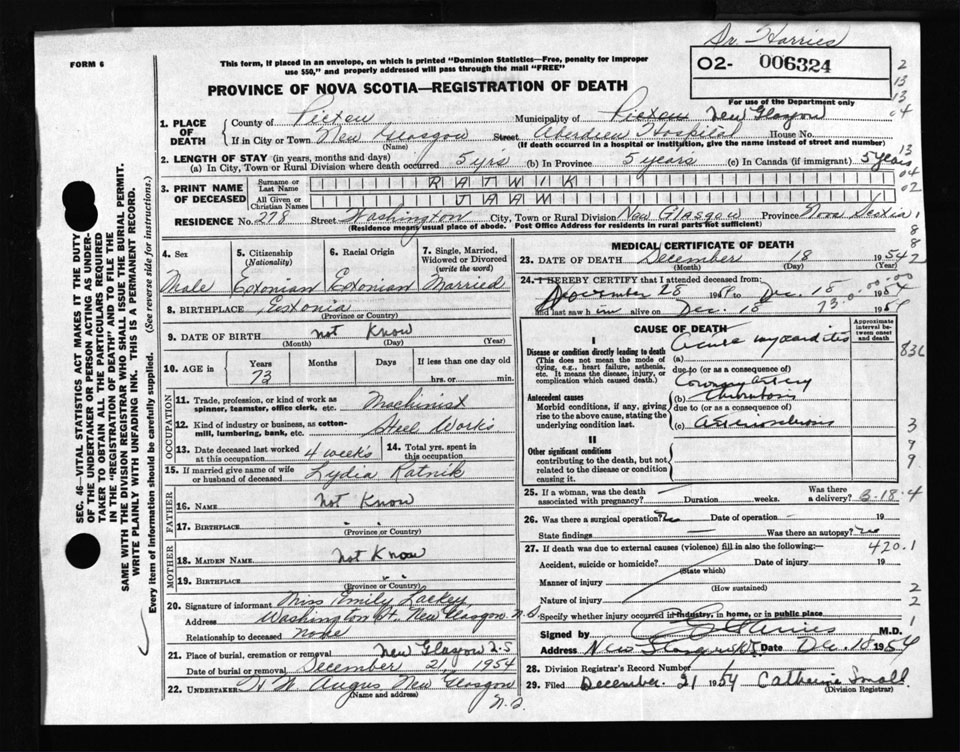 Dr. Harries
FORM 6
This form, if placed in an envelope, on which is printed "Dominion Statistics—Free, penalty for improper
use $50," and properly addressed will pass through the mail "FREE"
02- 006324
PROVINCE OF NOVA SCOTIA—REGISTRATION OF DEATH
For use of the Department only
1. PLACE OF DEATH
County of Pictou Municipality of Pictou New Glasgow
If in City or Town New Glasgow Street Aberdeen Hospital House No.
(Name) (If death occurred in a hospital or institution, give the name instead of street and number)
2. LENGTH OF STAY (in years, months and days)
(a) In City, Town or Rural Division where death occurred 5 yrs (b) In Province 5 years (c) In Canada (if immigrant) 5 years
3. PRINT NAME OF DECEASED
Surname or Last Name RATWIK
All Given or Christian Names JAAW
RESIDENCE No. 278 Street Washington City, Town or Rural Division New Glasgow Province Nova Scotia
(Residence means usual place of abode. Post Office Address for residents in rural parts not sufficient)
4. Sex
Male
5. Citizenship (Nationality)
Estonian
6. Racial Origin
Estonian
7. Single, Married, Widowed or Divorced (write the word)
Married
8. BIRTHPLACE Estonia
(Province or Country)
9. DATE OF BIRTH not Know
(Month) (Day) (Year)
10. AGE in Years Months Days If less than one day
73 hrs. or min.
OCCUPATION
11. Trade, profession, or kind of work as spinner, teamster, office clerk, etc. Machinist
12. Kind of industry or business, as cotton-mill, lumbering, bank, etc. Steel Works
13. Date deceased last worked at this occupation 4 weeks 14. Total yrs. spent in this occupation
15. If married give name of wife or husband of deceased Lydia Ratnik
FATHER
16. Name not Know
17. Birthplace
(Province or Country)
MOTHER
18. Maiden Name not Know
19. Birthplace
(Province or Country)
20. Signature of informant Miss Emily Laskey
Address Washington St. New Glasgow N.S
Relationship to deceased none
21. Place of burial, cremation or removal New Glasgow N.S
Date of burial or removal December 21 1954
22. Undertaker H W Angus New Glasgow
(Name and address) N.S.
MEDICAL CERTIFICATE OF DEATH
23. DATE OF DEATH December 18 1954
(Month) (Day) (Year)
24. I HEREBY CERTIFY that I attended deceased from:
November 28 1954 to Dec. 18 1954
and last saw him alive on Dec. 18 1954
CAUSE OF DEATH
Approximate interval between onset and death
I
Disease or condition directly leading to death
(This does not mean the mode of dying, e.g., heart failure, asthenia, etc. It means the disease, injury, or complication which caused death.)
Acute myocarditis
(a)
due to (or as a consequence of)
Coronary artery
(b) thrombosis
Antecedent causes
Morbid conditions, if any, giving rise to the above cause, stating the underlying condition last.
due to (or as a consequence of)
(c) Arteriosclerosis
II
Other significant conditions
contributing to the death, but not related to the disease or condition causing it.
25. If a woman, was the death associated with pregnancy? Duration weeks. Was there a delivery? 3-18-4
26. Was there a surgical operation? No Date of operation 19
State findings Was there an autopsy? No
27. If death was due to external causes (violence) fill in also the following:— 420.1
Accident, suicide or homicide? Date of injury 19
(State which)
Manner of injury
(How sustained)
Nature of injury
Specify whether injury occurred in industry, in home, or in public place
Signed by M.D.
Address New Glasgow N.S. Date Dec. 18 1954
28. Division Registrar's Record Number
29. Filed December 21 1954 Catherine Small
(Division Registrar)
SEC. 46—VITAL STATISTICS ACT MAKES IT THE DUTY
OF THE UNDERTAKER OR PERSON ACTING AS UNDER-
TAKER TO OBTAIN ALL THE PARTICULARS REQUIRED
IN THE "REGISTRATION OF DEATH" AND TO FILE THE
SAME WITH THE DIVISION REGISTRAR WHO SHALL ISSUE THE BURIAL PERMIT.
WRITE PLAINLY WITH UNFADING INK. THIS IS A PERMANENT RECORD.
Every item of information should be carefully supplied. (See reverse side for instructions.)